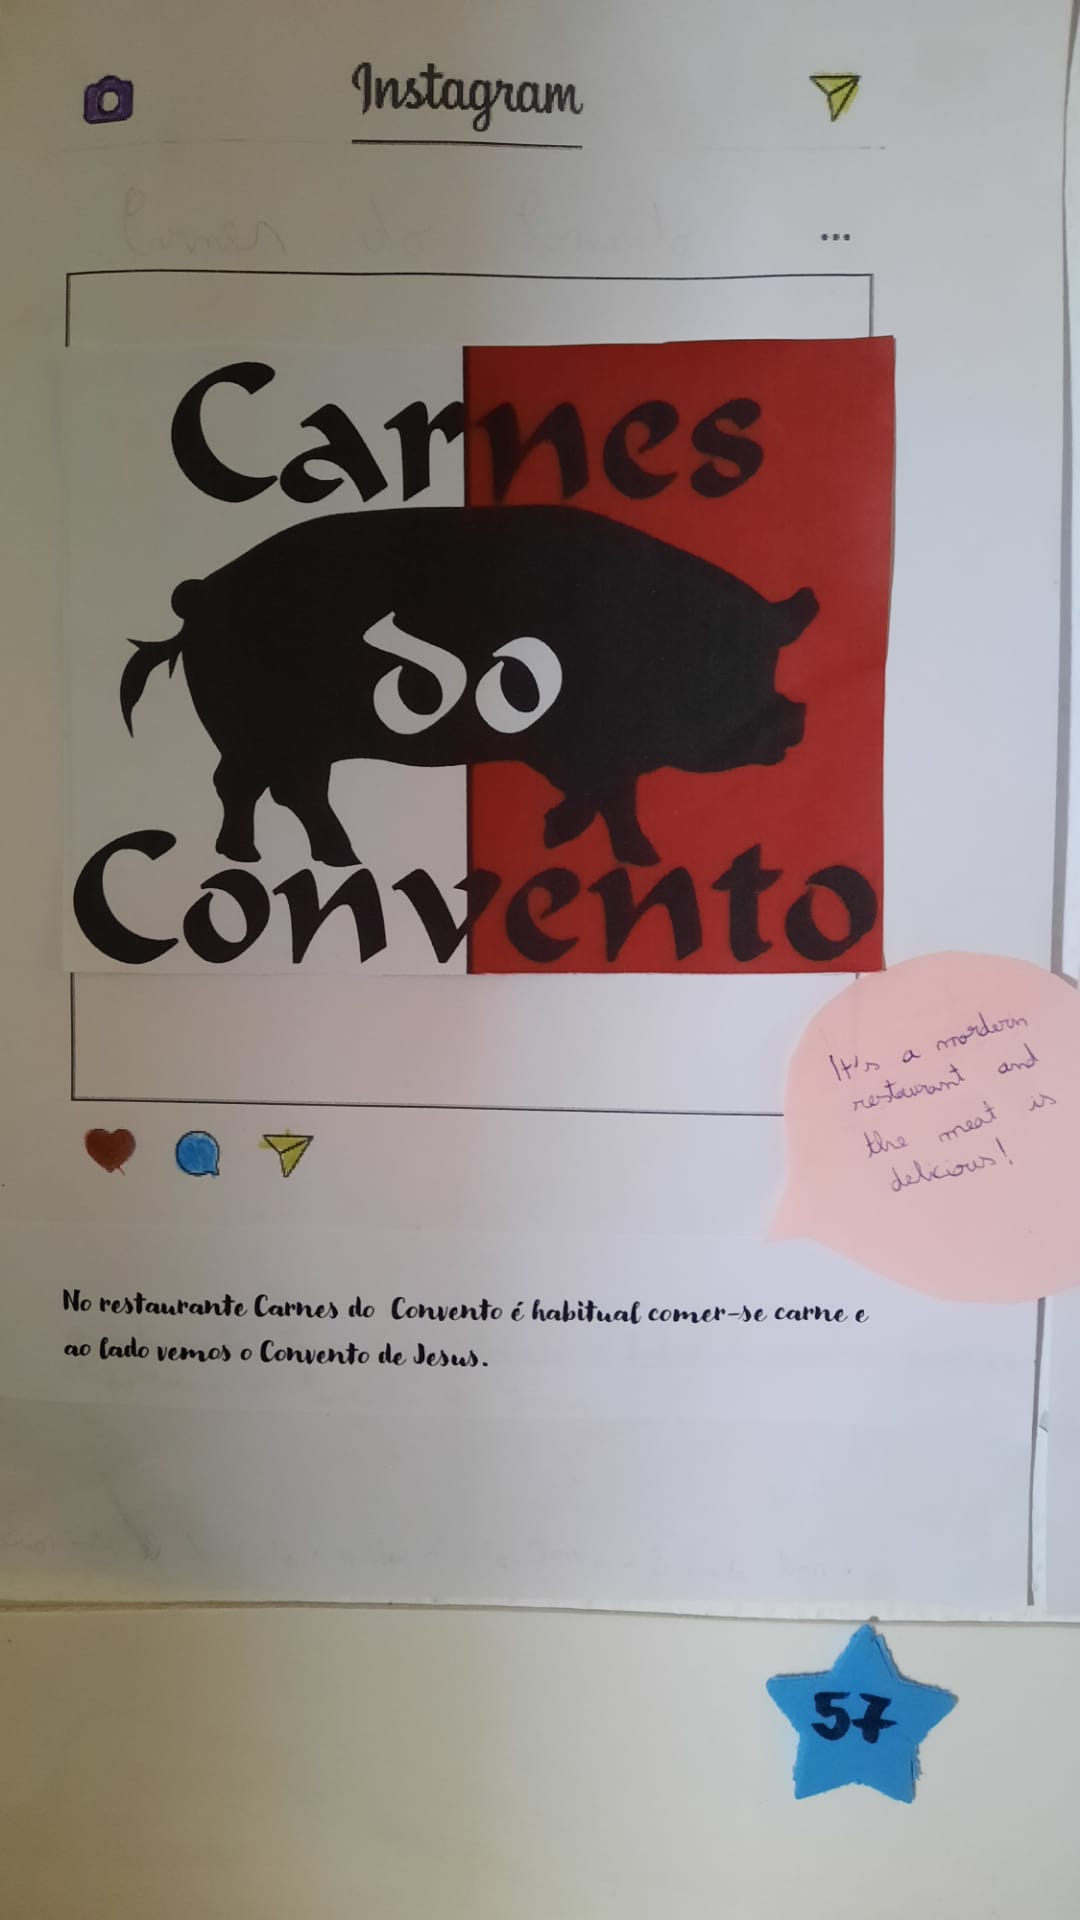 Instagram
...
Carnes
do
Convento
It's a mordern
restaurant and
the meat is
delicious!
No restaurante Carnes do Convento é habitual comer-se carne e
ao lado vemos o Convento de Jesus.
57